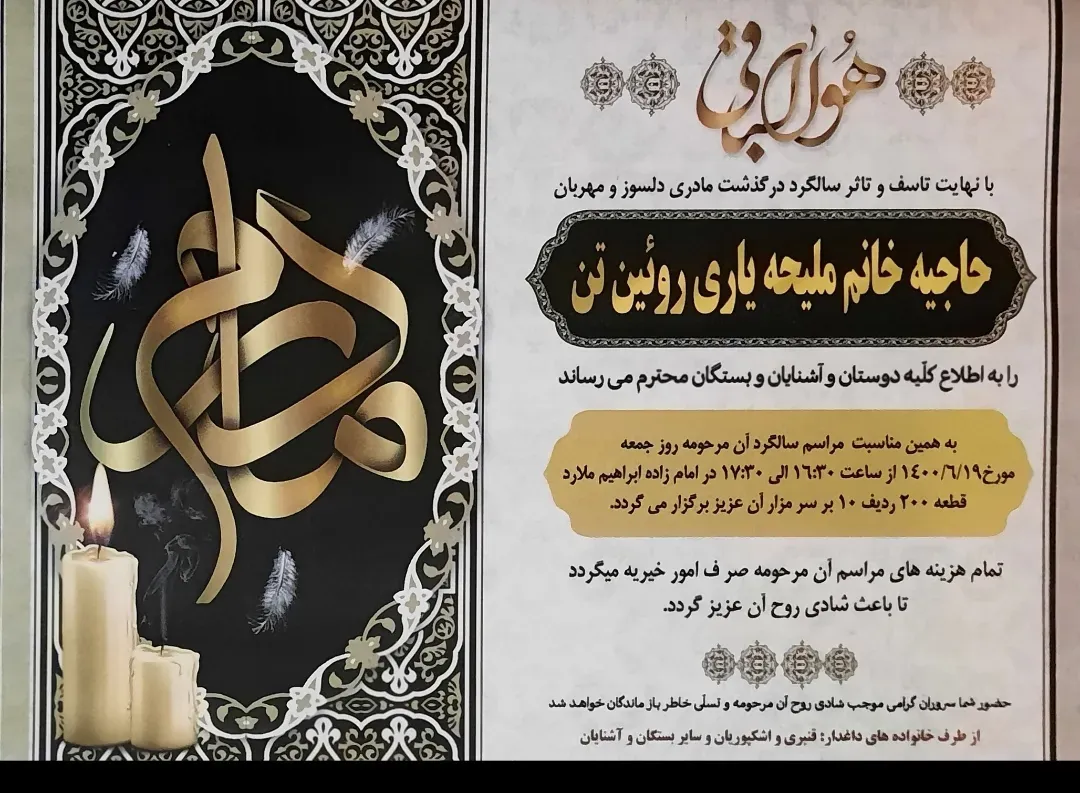 هوالباقی
با نهایت تاسف و تاثر سالگرد درگذشت مادری دلسوز و مهربان
حاجیه خانم ملیحه یاری روئین تن
را به اطلاع کلّیه دوستان و آشنایان و بستگان محترم می رساند
به همین مناسبت مراسم سالگرد آن مرحومه روز جمعه
مورخ ۱۴۰۰/۶/۱۹ از ساعت ۱۶:۳۰ الی ۱۷:۳۰ در امام زاده ابراهیم ملارد
قطعه ۲۰۰ ردیف ۱۰ بر سر مزار آن عزیز برگزار می گردد.
تمام هزینه های مراسم آن مرحومه صر ف امور خیریه میگردد
تا باعث شادی روح آن عزیز گردد.
حضور شما سروران گرامی موجب شادی روح آن مرحومه و تسلّی خاطر باز ماندگان خواهد شد
از طرف خانواده های داغدار: قنبری و اشکپوریان و سایر بستگان و آشنایان
مادرم